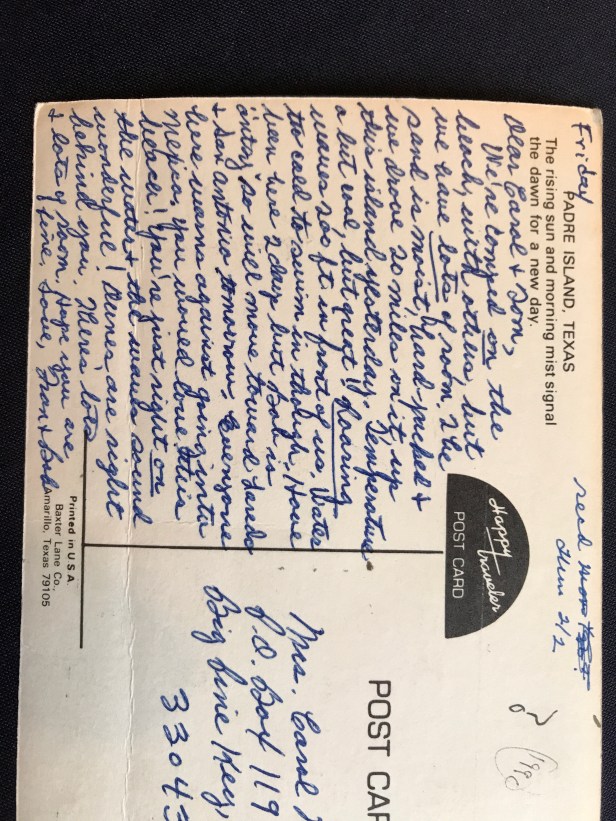 Friday
PADRE ISLAND, TEXAS
The rising sun and morning mist signal
the dawn for a new day.
Dear Carol & Tom,
We're camped on the
beach, with others, but
we have lots of room. The
sand is moist, hard-packed &
we drove 20 miles on it up
this island yesterday. Temperature
a bit cool, but great! Roaring
waves 200 ft in front of us. Water
to cool to swim in though. Have
been here 2 days but Bob is
antsy so will move toward Laredo
& San Antonio tomorrow. Everyone
here warns against going into
Mexico. You would love this
beach! You're just right on
the water & the warm sand
wonderful! Dunes are right
behind you. There's lots
& lots of room. Hope you are
fine, Love, Fran & Bob
Printed in U.S.A.
Baxter Lane Co.,
Amarillo, Texas 79105
Happy Traveler
POST CARD
recd
2/2
POST CAR
Mrs. Carol
P.O. Box 119
Big Pine Key,
3304